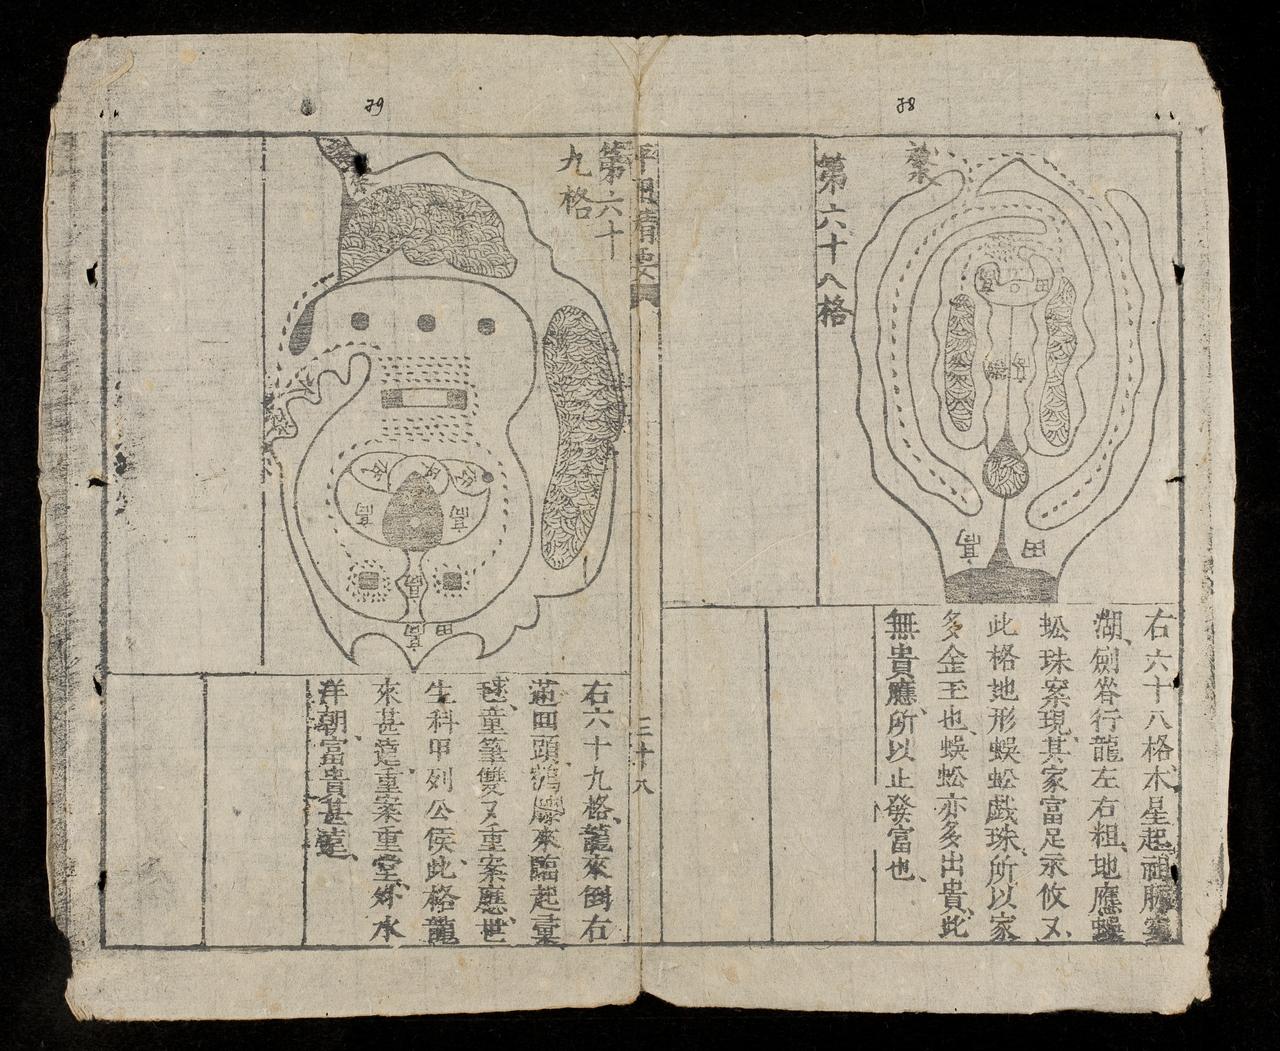 78
第六十八格
案
田
高
田
右六十八格木星起祖脈穿
湖劍脊行龍左右粗地應蜈
蚣珠案現其家富足永攸又
此格地形蜈蚣戲珠所以家
多金玉也蜈蚣亦多出貴此
無貴應所以止發富也
平用精要
三十八
79
第六十
九格
案
高
高
高
田
高
右六十九格龍來倒右
邊回頭鶴膝來臨起重
毬童筆雙又重案應世
生科甲列公侯此格龍
來甚遠重案重堂外水
洋朝富貴甚遠